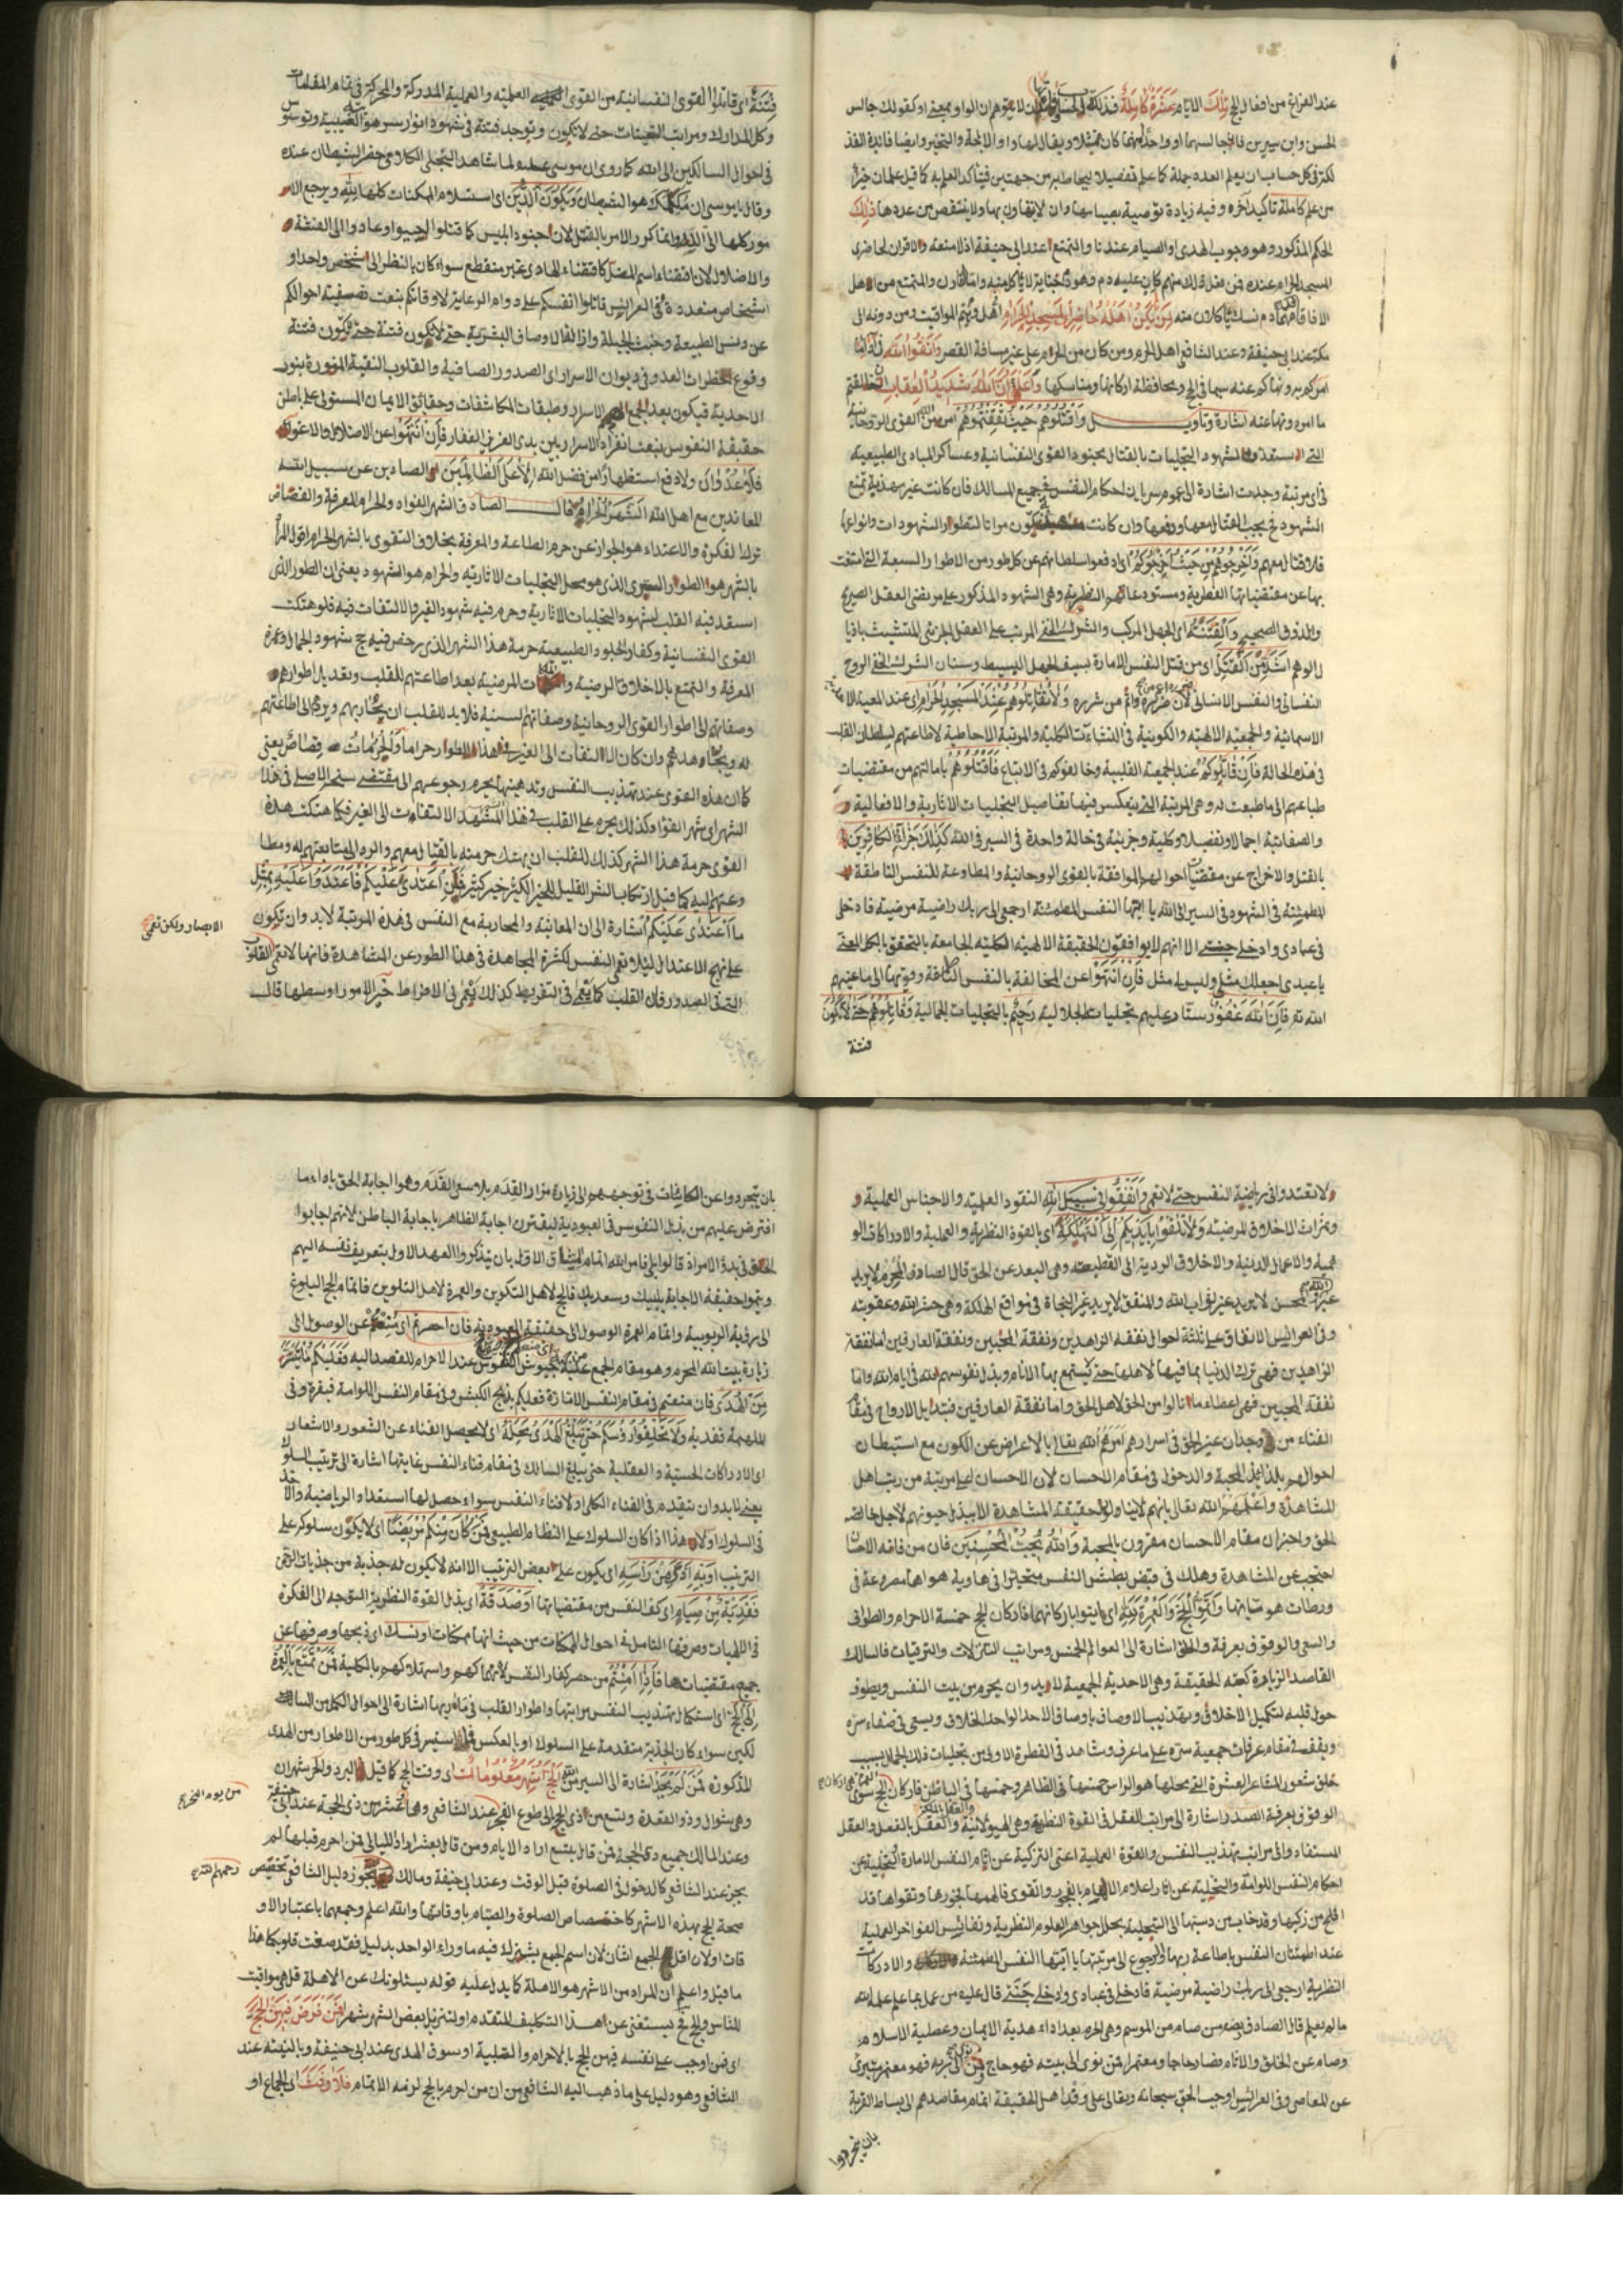 عند الفراغ من افعال الحج تلك الايام عشرة كاملة فذلكة الحساب لئلا يتوهم ان الواو بمعنى او كقولك جالس
الحسن وابن سيرين فلو جالسهما او واحدا منهما كان ممتثلا ويقال لهاذا واو الاباحة والتخيير وايضا فائدة الفذ
لكة في كل حساب ان يعلم العدد جملة كما علم تفصيلا ليحاط به من جهتين فيتأكد العلم به كما قيل علمان خير
من علم كاملة تاكيد اخر وفيه زيادة توصية بصيامها وان لا يتهاون بها ولا ينتقص من عددها ذلك
الحكم المذكور وهو وجوب الهدى او الصيام عندنا والتمتع عند ابى حنيفة اذ لا متعة ولا قران لحاضرى
المسجد الحرام عنده فمن فعل ذلك منهم كان عليه دم وهو دم جناية لا يأكل منه واما القارن والمتمتع من اهل
الافاق فدمهما دم نسك يأكلان منه لمن لم يكن اهله حاضرى المسجد الحرام اهل المواقيت ومن دونه الى
مكة عند ابى حنيفة وعند الشافعى اهل الحرم ومن كان من الحرم على غير مسافة القصر واتقوا الله فيما
امركم به ونهاكم عنه سيما في الحج ومحافظة اركانها ومناسكها واعلموا ان الله شديد العقاب ان خالفتم
ما امر ونهى عنه اشارة وتاويل واقتلوهم حيث ثقفتموهم امر من الله القوى الروحانية
التى استعدوا لشهود التجليات بالقتال بجنود القوى النفسانية وعساكر المبادى الطبيعية
في اى مرتبة وجدت اشارة الى عموم سريان احكام النفس في جميع المسالك فان كانت غير مهذبة تمنع
الشهود فح يجب القتال معها ودفعها وان كانت مهذبة تكون مراتا لتطوار الشهودات وانواعها
فلا قتال معهم واخرجوهم من حيث اخرجوكم اى ادفعوا سلطانهم عن كل طور من الاطوار السبعة التى امتنعت
بها عن مقتضياتها الفطرية ومستودعاتهم النظرية وهى الشهود المذكور على مرتضى العقل الصريح
والذوق الصحيح والفتنة اى الجهل المركب والشرك الخفى المرتب على العقل الجزئى المتشبث باذيا
ل الوهم اشد من القتل اى من قتل النفس الامارة بسيف الجهل البسيط وسنان الشرك الخفى الروح
النفسانى والنفس الانسانى لان ضرره اتم من شرره ولا تقاتلوهم عند المسجد الحرام اى عند المعية
الاسمائية والجمعية الالهية والكونية في النشاءت الكلية والمرتبة الاحاطية لاطاعتهم لسلطان القلب
في هذه الحالة فان قاتلوكم عند الجمعية القلبية وخالفوكم في الاتباع فاقتلوهم بامالتهم من مقتضيات
طباعهم الى ما طبعت له وهى المرتبة التى ينعكس فيها تفاصيل التجليات الاثارية والافعالية
والصفاتية اجمالا وتفصيلا وكلية وجزئية في حالة واحدة في السير في الله كذلك جزاء الكافرين
بالقتل والاخراج عن مقتضيات احوالهم الموافقة بالقوى الروحانية والمطاوعة للنفس الناطقة
المطمئنة في الشهود في السير الى الله يا ايتها النفس المطمئنة ارجعى الى ربك راضية مرضية فادخلى
في عبادى وادخلى جنتى الا انهم لا يوافقون الحقيقة الالهية الكلية الجامعة بالتحقق بالكل اعنى
يا عبدى اجعلك مثلى وليس لى مثل فان انتهوا عن المخالفة بالنفس الناطقة وقوتها الى ما عينهم
الله تع فان الله غفور ستار عليهم بتجليات الجلالية رحيم بالتجليات الجمالية وقاتلوهم حتى لا تكون
فتنة
فتنة اى قاتلوا القوى النفسانية من القوى العلمية والعملية المدركة والمحركة في تمام المقامات
وكل المدارك ومراتب التعينات حتى لا تكون ويوجد فتنة في شهود انوار سر هو الغيبية وتوسوس
في احوال السالكين الى الله كما روى ان موسى عليه لما شاهد التجلى الكلامى حضر الشيطان عنده
وقال يا موسى ان مكلمك هو الشيطان ويكون الدين اى استسلام الممكنات كلها لله ويرجع الا
مور كلها الى الله وانما كرر الامر بالقتل لان جنود ابليس كلما قتلوا احييوا وعادوا الى الفتنة
والاضلال لان اقتضاء اسم المضل كاقتضاء الهادى غير منقطع سواء كان بالنظر الى شخص واحد او
اشخاص متعددة وفى العرايس قاتلوا انفسكم على دوام الرعاية لاوقاتكم بنعت تصفية احوالكم
عن دنس الطبيعة وخبث الجبلة وازالة الاوصاف البشرية حتى لا تكون فتنة حتى لا يكون فتنة
وقوع خطرات العدو في ديوان الاسرار اى الصدور الصافية والقلوب النقية المنورة بنور
الاحدية فيكون بعد الجمع الاسرار وطبقات المكاشفات وحقائق الايمان المستولى على باطن
حقيقة النفوس بنعت انفراد الاسرار بين يدى العزيز الغفار فان انتهوا عن الاضلال والاغواء
فلا عدوان ولا دفع استظهارا من فضل الله الا على الظالمين الصادين عن سبيل الله
المعاندين مع اهل الله الشهر الحرام قال الصادق الشهر الفؤاد والحرام المعرفة والقصاص
ترك الفكرة والاعتداء هو الجواز عن حرم الطاعة والمعرفة بخلاف التقوى بالشهر الحرام اقول المراد
بالشهر هو الطور السرى الذى هو محل التجليات الاثارية والحرام هو الشهود يعنى ان الطور الذى
استعد فيه القلب لشهود التجليات الاثارية وحرم فيه شهود الغير والالتفات فيه فلو هتكت
القوى النفسانية وكفار الجلود الطبيعية حرمة هذا الشهر الذى رخص فيه حج شهود الجمال وعمرة
المعرفة والتمتع بالاخلاق الرضية والملكات المرضية بعد اطاعتهم للقلب وتعديل اطوارهم
وصفاتهم الى اطوار القوى الروحانية وصفاتهم السنية فلا بد للقلب ان يحاربهم ويردهم الى اطاعتهم
له ويجاهدهم وان كان الالتفات الى الغير في هذا الطوار حراما والحرمات قصاص يعنى
كما ان هذه القوى عند تهذيب النفس وتدهينها يحرم رجوعهم الى مقتضى سنخ الاصل في هذا
الشهر اى شهر الفؤاد وكذلك يحرم على القلب في هذا المشهد الالتفات الى الغير فكما هتكت هذه
القوى حرمة هذا الشهر كذلك للقلب ان يهتك حرمته بالقتال معهم والرد الى متابعتهم له ومطا
وعتهم اليه كما قيل ارتكاب الشر القليل للخير الكثير خير كثير فمن اعتدى عليكم فاعتدوا عليه بمثل
ما اعتدى عليكم اشارة الى ان المعاتبة والمحاربة مع النفس في هذه المرتبة لا بد وان تكون
على نهج الاعتدال لئلا تعمى النفس لكثرة المجاهدة في هذا الطور عن المشاهدة فانها لا تعمى القلوب
الابصار ولكن تعمى
التى في الصدور فان القلب كما يعمى في التفريط كذلك يعمى في الافراط خير الامور اوسطها قال
ولا تعتدوا في رياضية النفس حتى لا تعمى وانفقوا في سبيل الله النقود العلمية والاجناس العملية و
وثمرات الاخلاق المرضية ولا تلقوا بايديكم الى التهلكة اى بالقوة النظرية والعملية والادراكات الو
همية والاعمال الدنية والاخلاق الردية الى القطيعة وهى البعد عن الحق قال الصادق المحرم لا يريد
غير الله المحسن لا يريد غير ثواب الله والمنفق لا يريد غير النجاة في مواقع الهلكة وهى حذر الله وعقوبته
وفى العرائس الانفاق على ثلثة احوال نفقة الزاهدين ونفقة المحبين ونفقة العارفين اما نفقة
الزاهدين فهى ترك الدنيا بما فيها لاهلها حتى يستمتع بها الانام وبذل نفوسهم لله في ايام الله واما
نفقة المحبين فهى اعطاء ما نالوا من الحق لاهل الحق واما نفقة العارفين فبتدايل الارواح في مقام
الفناء من وجدان غير الحق في اسرارهم امرهم الله تعالى بالاعراض عن الكون مع استبطان
احوالهم بلذائذ المحبة والدخول في مقام الاحسان لان الاحسان اعلى مرتبة من رتب اهل
المشاهدة واعلمهم الله تعالى بانهم لا ينالوا حقيقة المشاهدة الا ببذل حيوتهم لاجل خالصه
الحق واخبر ان مقام الاحسان مقرون بالمحبة والله يحب المحسنين فان من فاته الاحسان
احتجب عن المشاهدة وهلك في قبض بطش النفس متحيرا في هاوية هواها مصروعة في
ورطات هوسياتها واتموا الحج والعمرة لله اى ايتوا باركانهما فاركان الحج خمسة الاحرام والطواف
والسعى والوقوف بعرفة والحلق اشارة الى العوالم الخمس ومراتب التنزلات والترقيات فالسالك
القاصد لزيارة كعبة الحقيقة وهى الاحدية الجمعية لا بد وان يحرم من بيت النفس ويطوف
حول قلبه لتكميل الاخلاق وتهذيب الاوصاف باوصاف الاحد الواحد الخلاق ويسعى في صفاء سره
ويقف في مقام عرفات جمعية سره على ما عرف وشاهد في الفطرة الاولى من تجليات ذلك الجمال بسبب
حلق شعور المشاعر العشرة التى محلها هو الراس خمسها في الظاهر وخمسها في الباطن فاركان الحج سوى
الوقوف بعرفة الصدر اشارة الى مراتب العقل في القوة النظرية وهى الهيولانية والعقل بالملكة والعقل بالفعل والعقل
المستفاد والى مراتب تهذيب النفس والقوة العملية اعنى التزكية عن اثام النفس الامارة والتخلية عن
احكام النفس اللوامة والتحلية عن اثار اعلام الالهام بالفجور والتقوى فالهمها فجورها وتقواها قد
افلح من زكيها وقد خاب من دسيها الى التجلية بحلل جواهر العلوم النظرية ونفائس الفواخر العملية
عند اطمئنان النفس باطاعة ربها والرجوع الى مرتبتها يا ايتها النفس المطمئنة والادركات
النظرية ارجعى الى ربك راضية مرضية فادخلى في عبادى وادخلى جنتى قال عليه من عمل بما علم علمه الله
ما لم يعلم قال الصادق رضه من صام من الموسم وهى الحرم بعد اداء هدية الايمان وعطية الاسلام
وصام عن الخلق والاثام فصار حاجا ومعتمرا فمن نوى الى بيته فهو حاج ومن نوى الى ربه فهو معتمر متبرئ
عن المعاصى وفى العرائس اوجب الحق سبحانه وتعالى على وفد اهل الحقيقة اتمام مقاصدهم الى بساط القربة
بان يتجردوا
بان يتجردوا عن الكائنات في توجههم الى زيارة مزار القدم بلا سعى القدم وهو اجابة الحق باداء ما
افترض عليهم من بذل النفوس في العبودية ليقترن اجابة الظاهر باجابة الباطن لانهم اجابوا
الحق في بدؤ الامر اذ قالوا بلى فامر الله اتمام الميثاق الاول بان يتذكروا العهد الاول بتعريف نفسه اليهم
ويتموا حقيقة الاجابة بلبيك وسعديك فالحج لاهل التكوين والعمرة لاهل التلوين فاتمام الحج البلوغ
الى رؤية الربوبية واتمام العمرة الوصول الى حقيقة العبودية فان احصرتم اى منعتم عن الوصول الى
زيارة بيت الله المحرم وهو مقام الجمع غلبة جيوش النفوس عند الاحرام للقصد اليه فعليكم ما استيسر
من الهدى فان منعتم في مقام النفس الامارة فعليكم بذبح الكبش وفى مقام النفس اللوامة فبقرة وفى
الملهمة ففدية ولا تحلقوا رؤسكم حتى يبلغ الهدى محله اى لا يحصل الفناء عن الشعور والاشعار
اى الادراكات الحسية والعقلية حتى يبلغ السالك في مقام فناء النفس غايتها اشارة الى ترتيب السلوك
يعنى لا بد وان يتقدم في الفناء الكلى ولا فناء النفس سواء حصل لها استعداد الرياضية والاخذ
في السلوك اولا هذا اذا كان السلوك على النظام الطبيعى فمن كان منكم مريضا اى لا يكون سلوكه على
الترتيب او به اذى من راسه اى يكون على بعض الترتيب الا انه لا يكون له جذبة من جذبات الحق
ففدية من صيام اى كف النفس من مقتضياتها او صدقة اى بذل القوة النظرية التوجه الى الفكرة
في الالهيات وصرفها التامل في احوال الممكنات من حيث انها ممكنات او نسك اى ذبحها وصرفها عن
جميع مقتضياتها فاذا امنتم من حصر كفار النفس لانهماكهم واستهلاكهم بالكلية فمن تمتع بالعمرة
الى الحج اى استكمل تهذيب النفس مراتبها واطوار القلب في مأربها اشارة الى احوال الكمل من السالك
لكن سواء كان الجذبة متقدمة على السلوك او بالعكس فما استيسر في كل طور من الاطوار من الهدى
المذكورة فمن لم يجد اشارة الى السير من الله الحج اشهر معلومات اى وقت الحج كما قيل البرد والحر شهران
وهى شوال وذو القعدة وتسع من ذى الحج الى طلوع الفجر عند الشافعى وهى عشر من ذى الحجة عند ابى حنيفة
من يوم النحر
وعند المالك جميع ذى الحجة فمن قال بتسع اراد الايام ومن قال بعشر اراد الليالى فمن احرم قبلها لم
يجز عند الشافعى كالدخول في الصلوة قبل الوقت وعند ابى حنيفة ومالك يجوز دليل الشافعى تخصيص
رحمهم الله
صحة الحج بهذه الاشهر كاختصاص الصلوة والصيام باوقاتها والله اعلم وجمعها باعتبار الاو
قات اولان اقل الجمع اثنان لان اسم الجمع يشترك فيه ما وراء الواحد بدليل فقد صغت قلوبكما هذا
ما قيل واعلم ان المراد من الاشهر هو الاهلة كما يدل عليه قوله يسئلونك عن الاهلة قل هى مواقيت
للناس والحج فح يستغنى عن هذا التكليف المتقدم اولتنزيل بعض الشهر شهرا فمن فرض فيهن الحج
اى فمن اوجب على نفسه فيهن الحج بالاحرام والتلبية او سوق الهدى عند ابى حنيفة وبالنيته عند
الشافعى وهو دليل على ما ذهب اليه الشافعى من ان من احرم بالحج لزمه الاتمام فلا رفث اى الجماع او